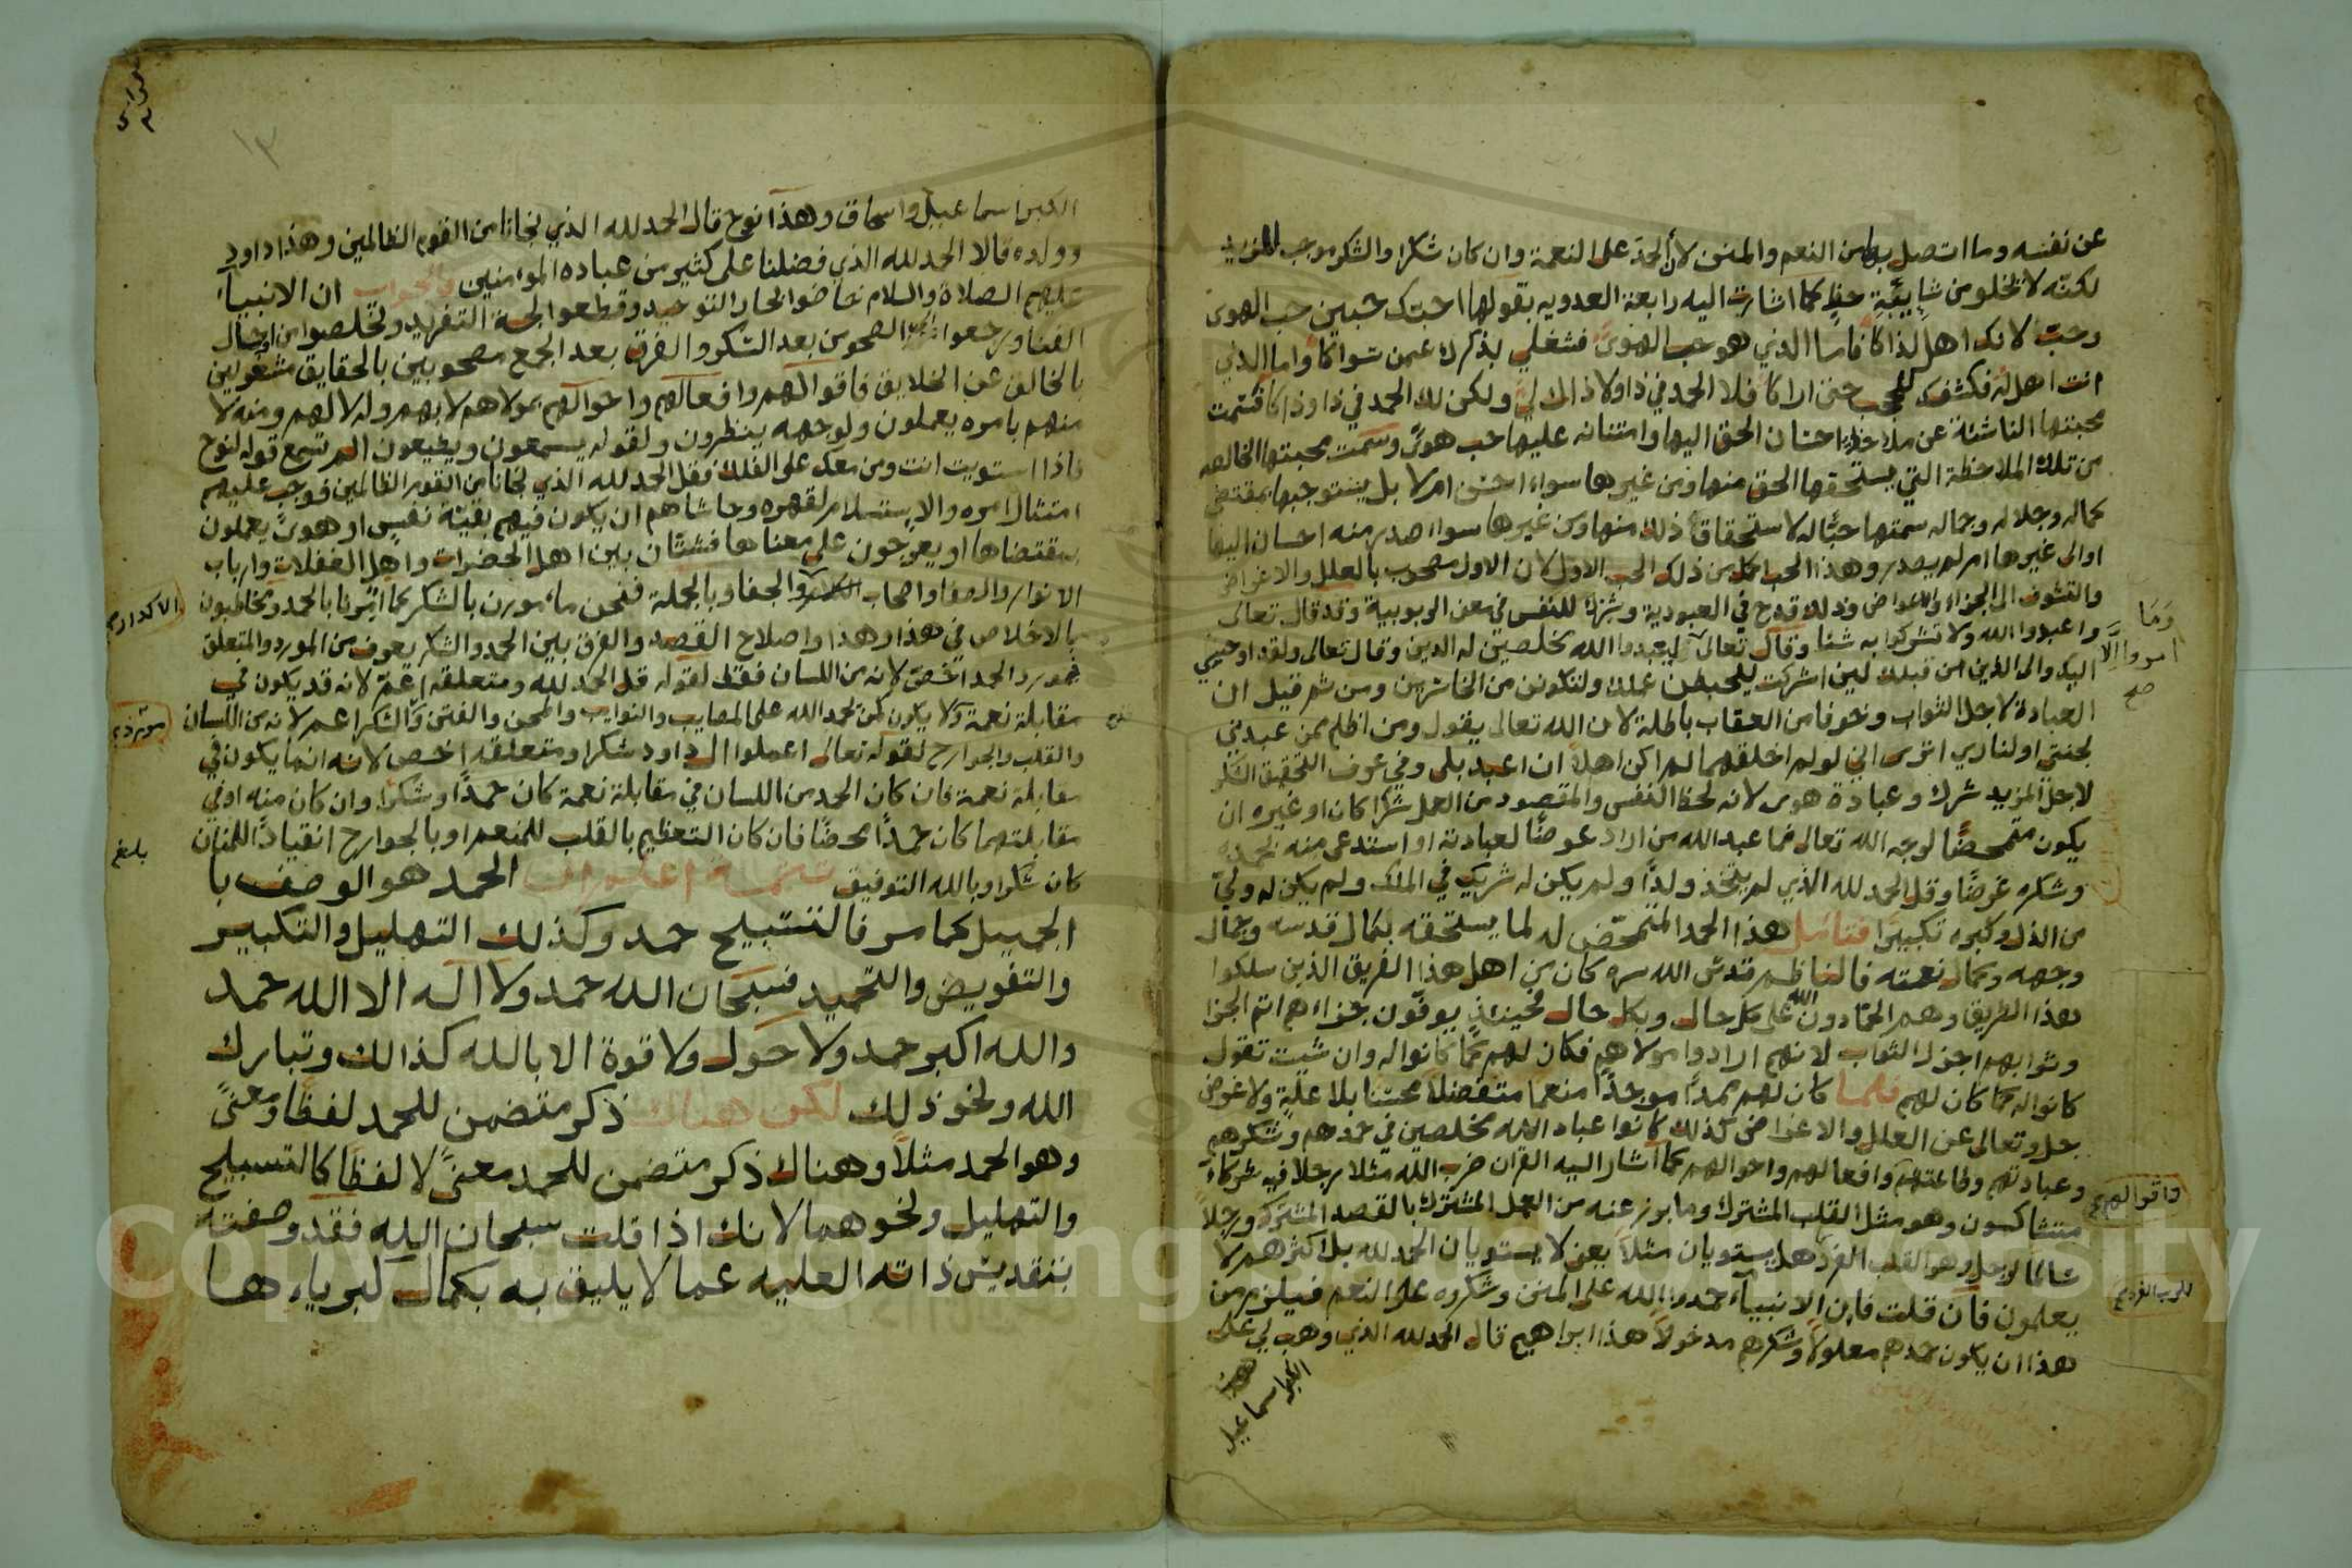 عن نفسه وما اتصل بها من النعم والمنن لأن الحمد على النعمة وان كان شكرا والشكر موجب للمزيد
لكنه لا تخلو من شايبة حظ كما اشارت اليه رابعة العدويه بقولها احبك حبين حب الهوى
وحبا لانك اهل لذاكا فاما الذي هو حب الهوى فشغلي بذكرك عمن سواكا واما الذي
انت اهل له فكشفك للحجب حتى اراكا فلا الحمد في ذا ولا ذاك لي ولكن لك الحمد في ذا وذاكا فسمت
محبتها الناشئة عن ملاحظة احسان الحق اليها وامتنانه عليها حب هوى وسمت محبتها الخالصه
من تلك الملاحظة التي يستحقها الحق منها ومن غيرها سواء احسن ام لا بل يستوجبها بمقتضى
كماله وجلاله وجماله سمتها حبا له لاستحقاق ذلك منها ومن غيرها سواء صدر منه احسان اليها
اوالى غيرها ام لم يصدر وهذا الحب اكمل من ذلك الحب الاول لان الاول مصحوب بالعلل والاغراض
والتشوف الى الجزاء والاعواض وذلك قدح في العبودية وشركة للنفس في معنى الربوبية وقد قال تعالى
واعبدوا الله ولا تشركوا به شئا وقال تعالى ليعبدوا الله مخلصين له الدين وقال تعالى ولقد اوحي
وما امروا الا صح
اليك والى الذين من قبلك لين اشركت ليحبطن عملك ولتكونن من الخاسرين ومن ثم قيل ان
العبادة لاجل الثواب وخوفا من العقاب باطلة لان الله تعالى يقول ومن اظلم ممن عبدني
لجنتي او لناري اترى اني لو لم اخلقهما لم اكن اهلا ان اعبد بلى وفي عرف التحقيق الشكر
لاجل المزيد شرك وعبادة هوى لانه لحظ النفس والمقصود من العمل شكرا كان او غيره ان
يكون متمحضا لوجه الله تعالى فما عبد الله من اراد عوضا لعبادته او استدعى منه لحمده
وشكره غرضا وقل الحمد لله الذي لم يتخذ ولدا ولم يكن له شريك في الملك ولم يكن له ولي
من الذل وكبره تكبيرا فتامل هذا الحمد المتمحض له لما يستحقه بكمال قدسه وجمال
وجهه وكمال نعمته فالناظم قدس الله سره كان من اهل هذا الفريق الذين سلكوا
هذا الطريق وهم الحمادون الله على كل حال وبكل حال فحينئذ يوفون جزاءهم اتم الجزا
وثوابهم اجزل الثواب لانهم ارادوا مولاهم فكان لهم كما كانوا له وان شيت تقول
كانوا له كما كان لهم فلما كان لهم ممدا موجدا منعما متفضلا محسنا بلا علة ولا غوض
جل وتعالى عن العلل والاغراض كذلك كانوا عباد الله مخلصين في حمدهم وشكرهم
وعبادتهم وطاعتهم وافعالهم واحوالهم كما اشار اليه القران ضرب الله مثلا رجلا فيه شركاء
واقوالهم صح
متشاكسون وهو مثل القلب المشترك وما برز عنه من العمل المشترك بالقصد المشترك ورجلا
سالما لرجل وهو القلب الفرد هل يستويان مثلا يعني لا يستويان الحمد لله بل اكثرهم لا
يعلمون فان قلت فان الانبياء حمدوا الله على المنن وشكروه على النعم فيلزم من
هذا ان يكون حمدهم معلولا وشكرهم مدخولا هذا ابراهيم قال الحمد لله الذي وهب لي على
الكبر اسماعيل
١٣
الكبر اسماعيل واسحاق وهذا نوح قال الحمد لله الذي نجانا من القوم الظالمين وهذا داود
وولده قالا الحمد لله الذي فضلنا على كثير من عباده المؤمنين فالجواب ان الانبياء
عليهم الصلاة والسلام خاضوا بحار التوحيد وقطعوا لجة التفريد وتخلصوا من اوحال
الفنا ورجعوا الى الصحو من بعد السكر والفرق بعد الجمع مصحوبين بالحقايق مشغولين
بالخالق عن الخلايق فاقوالهم وافعالهم واحوالهم بمولاهم لا بهم وله لا لهم ومنه لا
منهم بامره يعملون ولوجهه ينظرون ولقوله يسمعون ويطيعون الم تسمع قوله لنوح
فاذا استويت انت ومن معك على الفلك فقل الحمد لله الذي نجانا من القوم الظالمين فوجب عليهم
امتثال امره والاستسلام لقهره وحاشاهم ان يكون فيهم بقية نفس او هوى يعملون
بمقتضاها او يعرجون على معناها فشتان بين اهل الحضرات واهل الغفلات وارباب
الانوار والصفا واصحاب والجفا وبالجملة فنحن مامورن بالشكر كما امرنا بالحمد ومخاطبون
الاكدار صح
بالاخلاص في هذا وهذا واصلاح القصد والفرق بين الحمد والشكر يعرف من المورد والمتعلق
فمورد الحمد اخص لانه من اللسان فقط لقوله قل الحمد لله ومتعلقه اعم لانه قد يكون في
مقابلة نعمة وقد لا يكون كمن يحمد الله على المصايب والنوايب والمحن والفتن والشكر اعم لانه من اللسان
والقلب والجوارح لقوله تعالى اعملوا ال داود شكرا ومتعلقه اخص لانه انما يكون في
مقابلة نعمة فان كان الحمد من اللسان في مقابلة نعمة كان حمدا وشكرا وان كان منه لا في
مقابلتهما كان حمدا محضا فان كان التعظيم بالقلب للمنعم او بالجوارح انقيادا للمنان
بلغ
كان شكرا وبالله التوفيق تتمة اعلم ان الحمد هو الوصف با
الجميل كما مر فالتسبيح حمد وكذلك التهليل والتكبير
والتفويض والتحميد فسبحان الله حمد ولا اله الا الله حمد
والله اكبر حمد ولا حول ولا قوة الا بالله كذالك وتبارك
الله ونحو ذلك لكن هناك ذكر متضمن للحمد لفظا ومعنى
وهو الحمد مثلا وهناك ذكر متضمن للحمد معنى لا لفظا كالتسبيح
والتهليل ونحوهما لانك اذا قلت سبحان الله فقد وصفته
بتقديس ذاته العليه عما لا يليق به بكمال كبرياء ها
Copyright © King Saud University